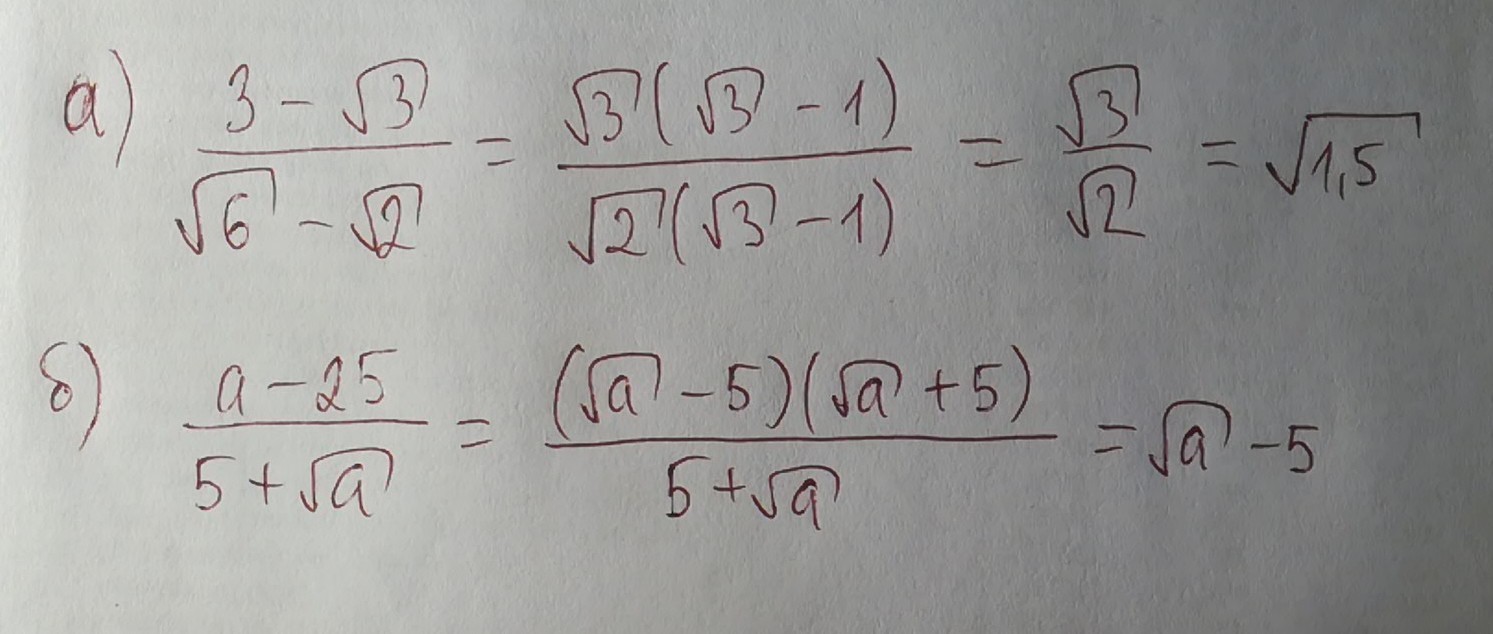 а) (3 - √3)/(√6 - √2) = (√3(√3 - 1))/(√2(√3 - 1)) = √3/√2 = √1,5
б) (a - 25)/(5 + √a) = ((√a - 5)(√a + 5))/(5 + √a) = √a - 5